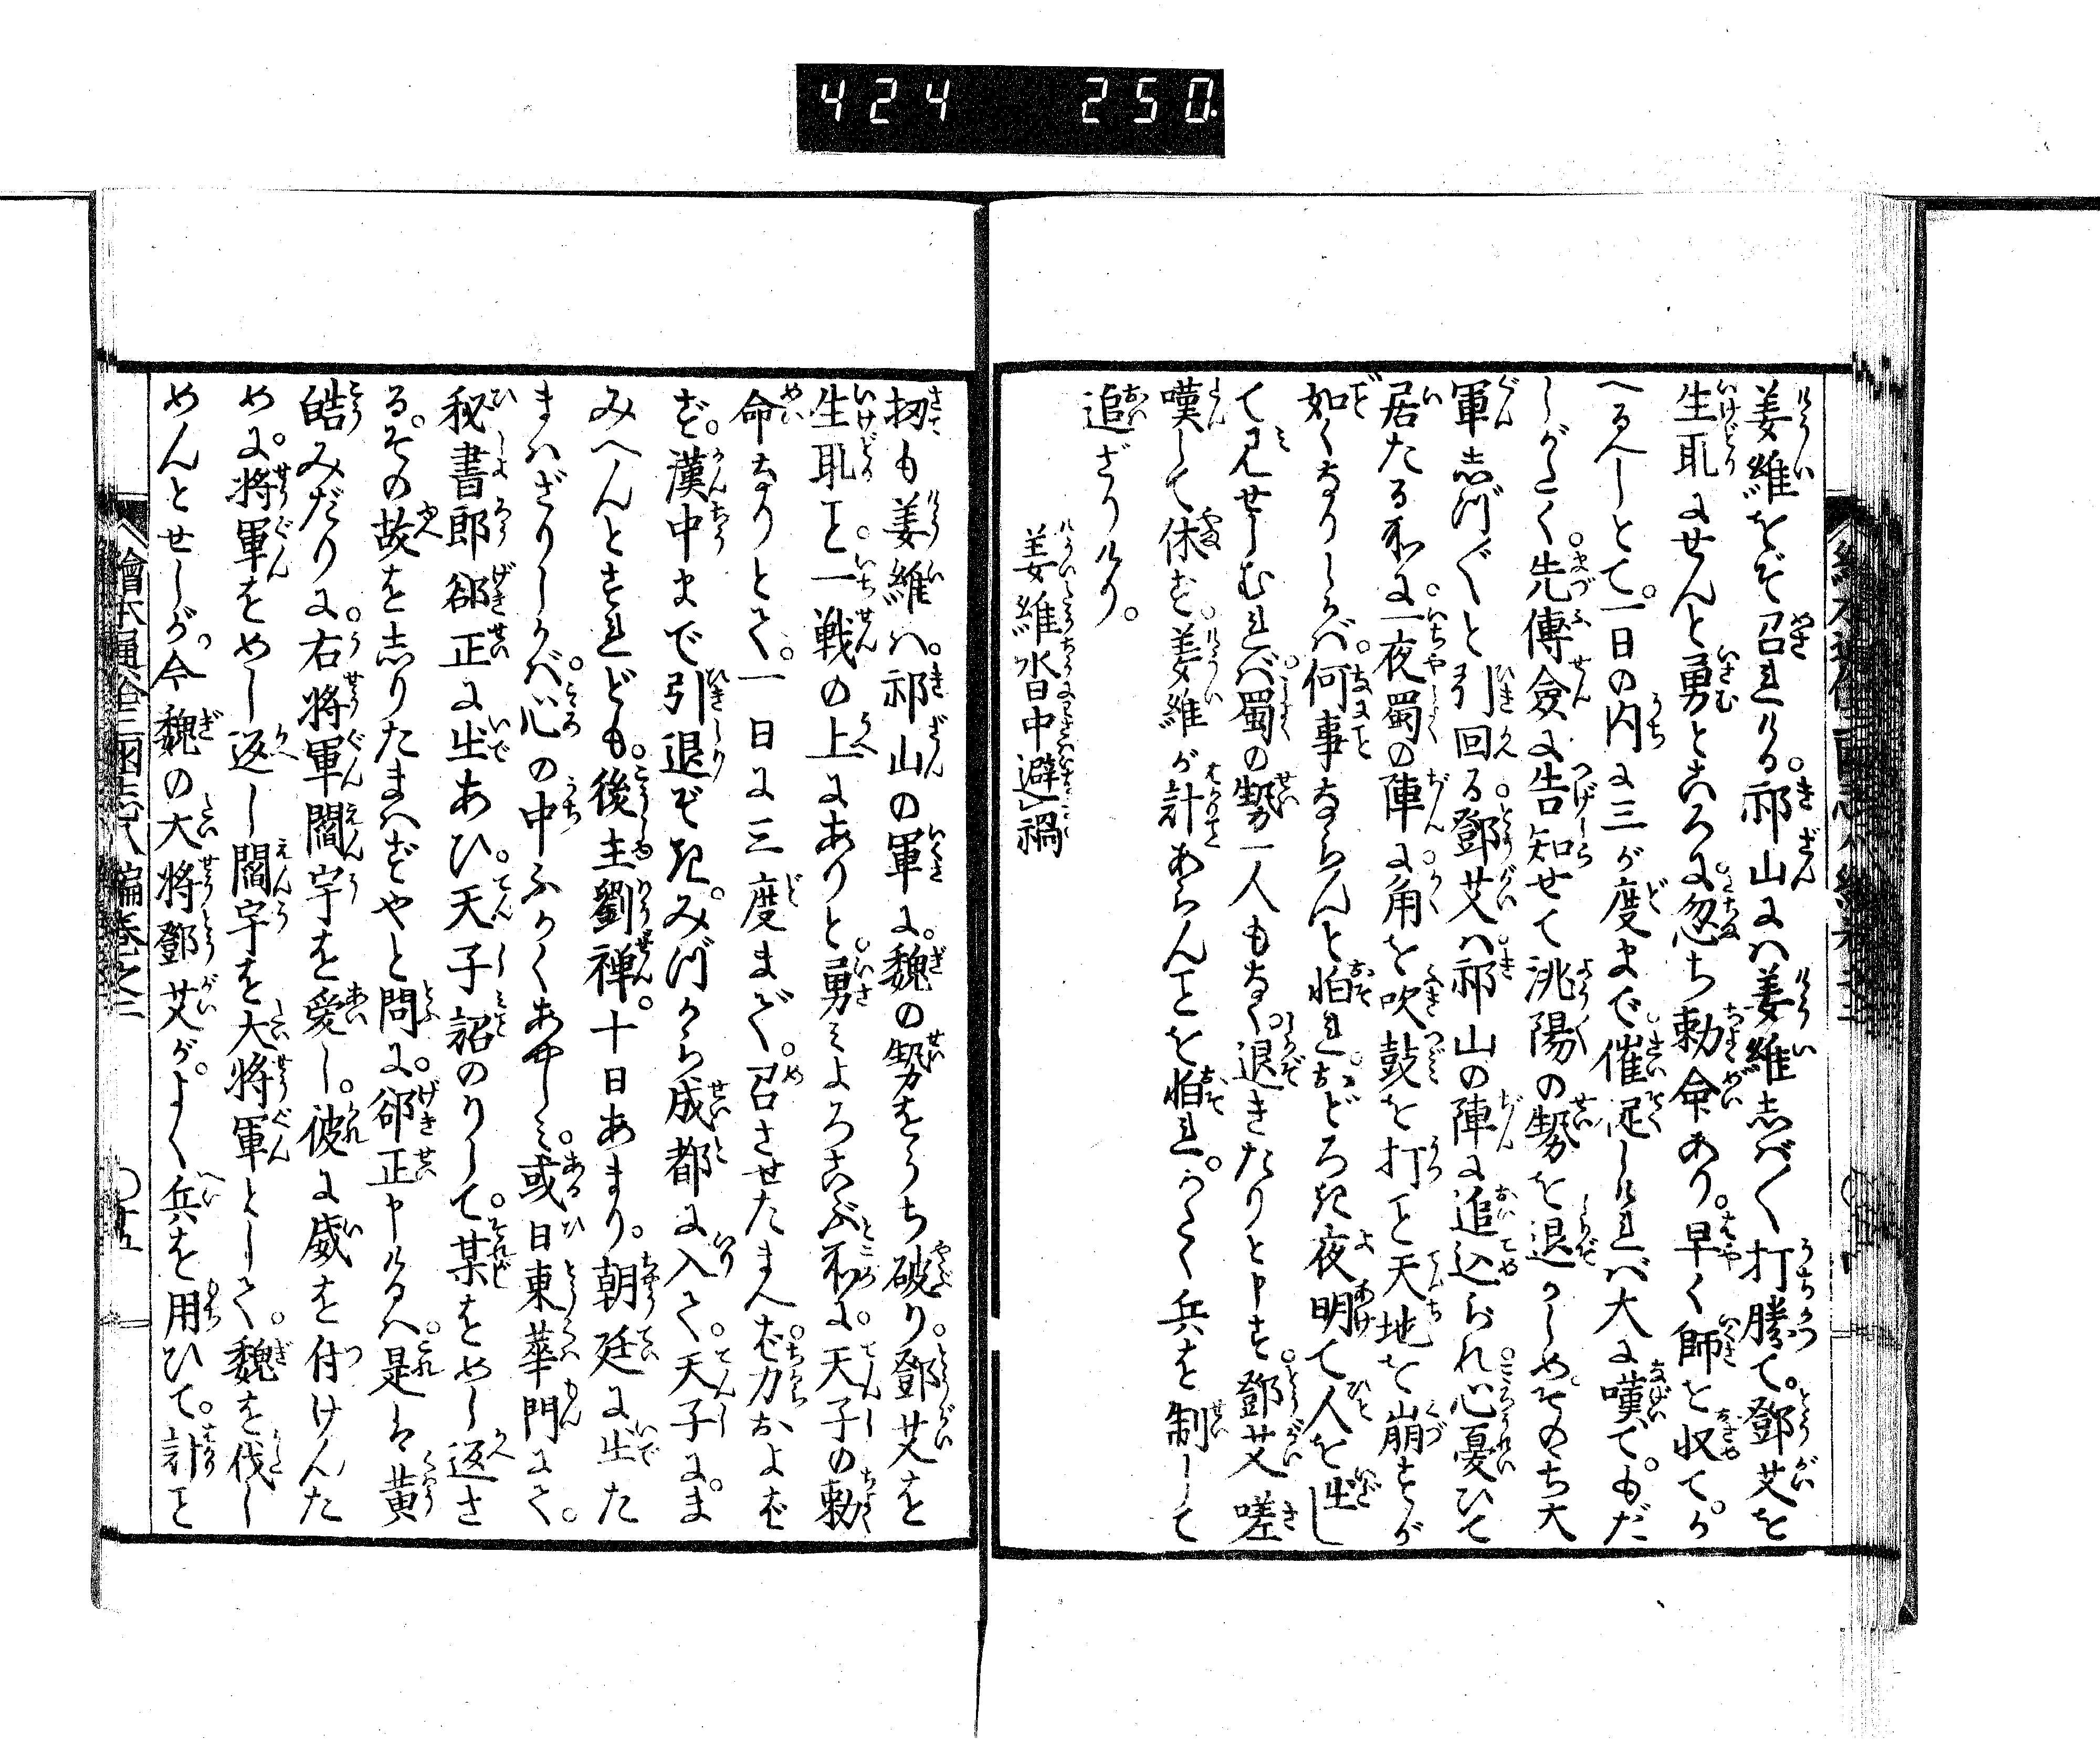 424 250
姜維をぞ召れける。祁山には姜維志ばく打勝て。鄧艾を
生取にせんと勇ところに忽ち勅命あり。早く師を収てか
へるべしとて。一日の内に三が度まで催促しければ大に嘆で。もだ
しがたく先傅僉に告知せて洮陽の勢を退かしめ。そのち大
軍志づ〴〵と引回る。鄧艾ハ祁山の陣に追込られ心憂ひて
居たる所に一夜蜀の陣に角を吹鼓を打こと天地を崩すが
如くなりしかば。何事ならんと怕れおどろき夜明て人を出し
て見せしむれば蜀の勢一人もなく退きたりと申す。鄧艾嗟
嘆して休ず。姜維が計あらんことを怕れ。かたく兵を制して
追ざりけり。
姜維沓中避禍
扨も姜維ハ。祁山の軍に。魏の勢をうち破り。鄧艾を
生取こと。一戦の上にありと。勇みよろこぶ所に。天子の勅
命なりとて。一日に三度まで。召させたまへば。力およば
ず。漢中まで引退ぞき。みづから成都に入て。天子に。ま
みへんとすれども。後主劉禅。十日あまり。朝廷に出た
まハざりしかば。心の中ふかくあやしみ。或日東華門にて。
秘書郎郤正に出あひ。天子詔のりして。某をめし返さ
る。その故を志りたまハずやと問に。郤正申けるハ。是は黄
皓みだりに。右将軍閻宇を愛し。彼に威を付けんた
めに。将軍をめし返し閻宇を大将軍として。魏を伐し
めんとせしが。今魏の大将鄧艾が。よく兵を用ひて。計こと
繪本通俗三國志八編巻之三